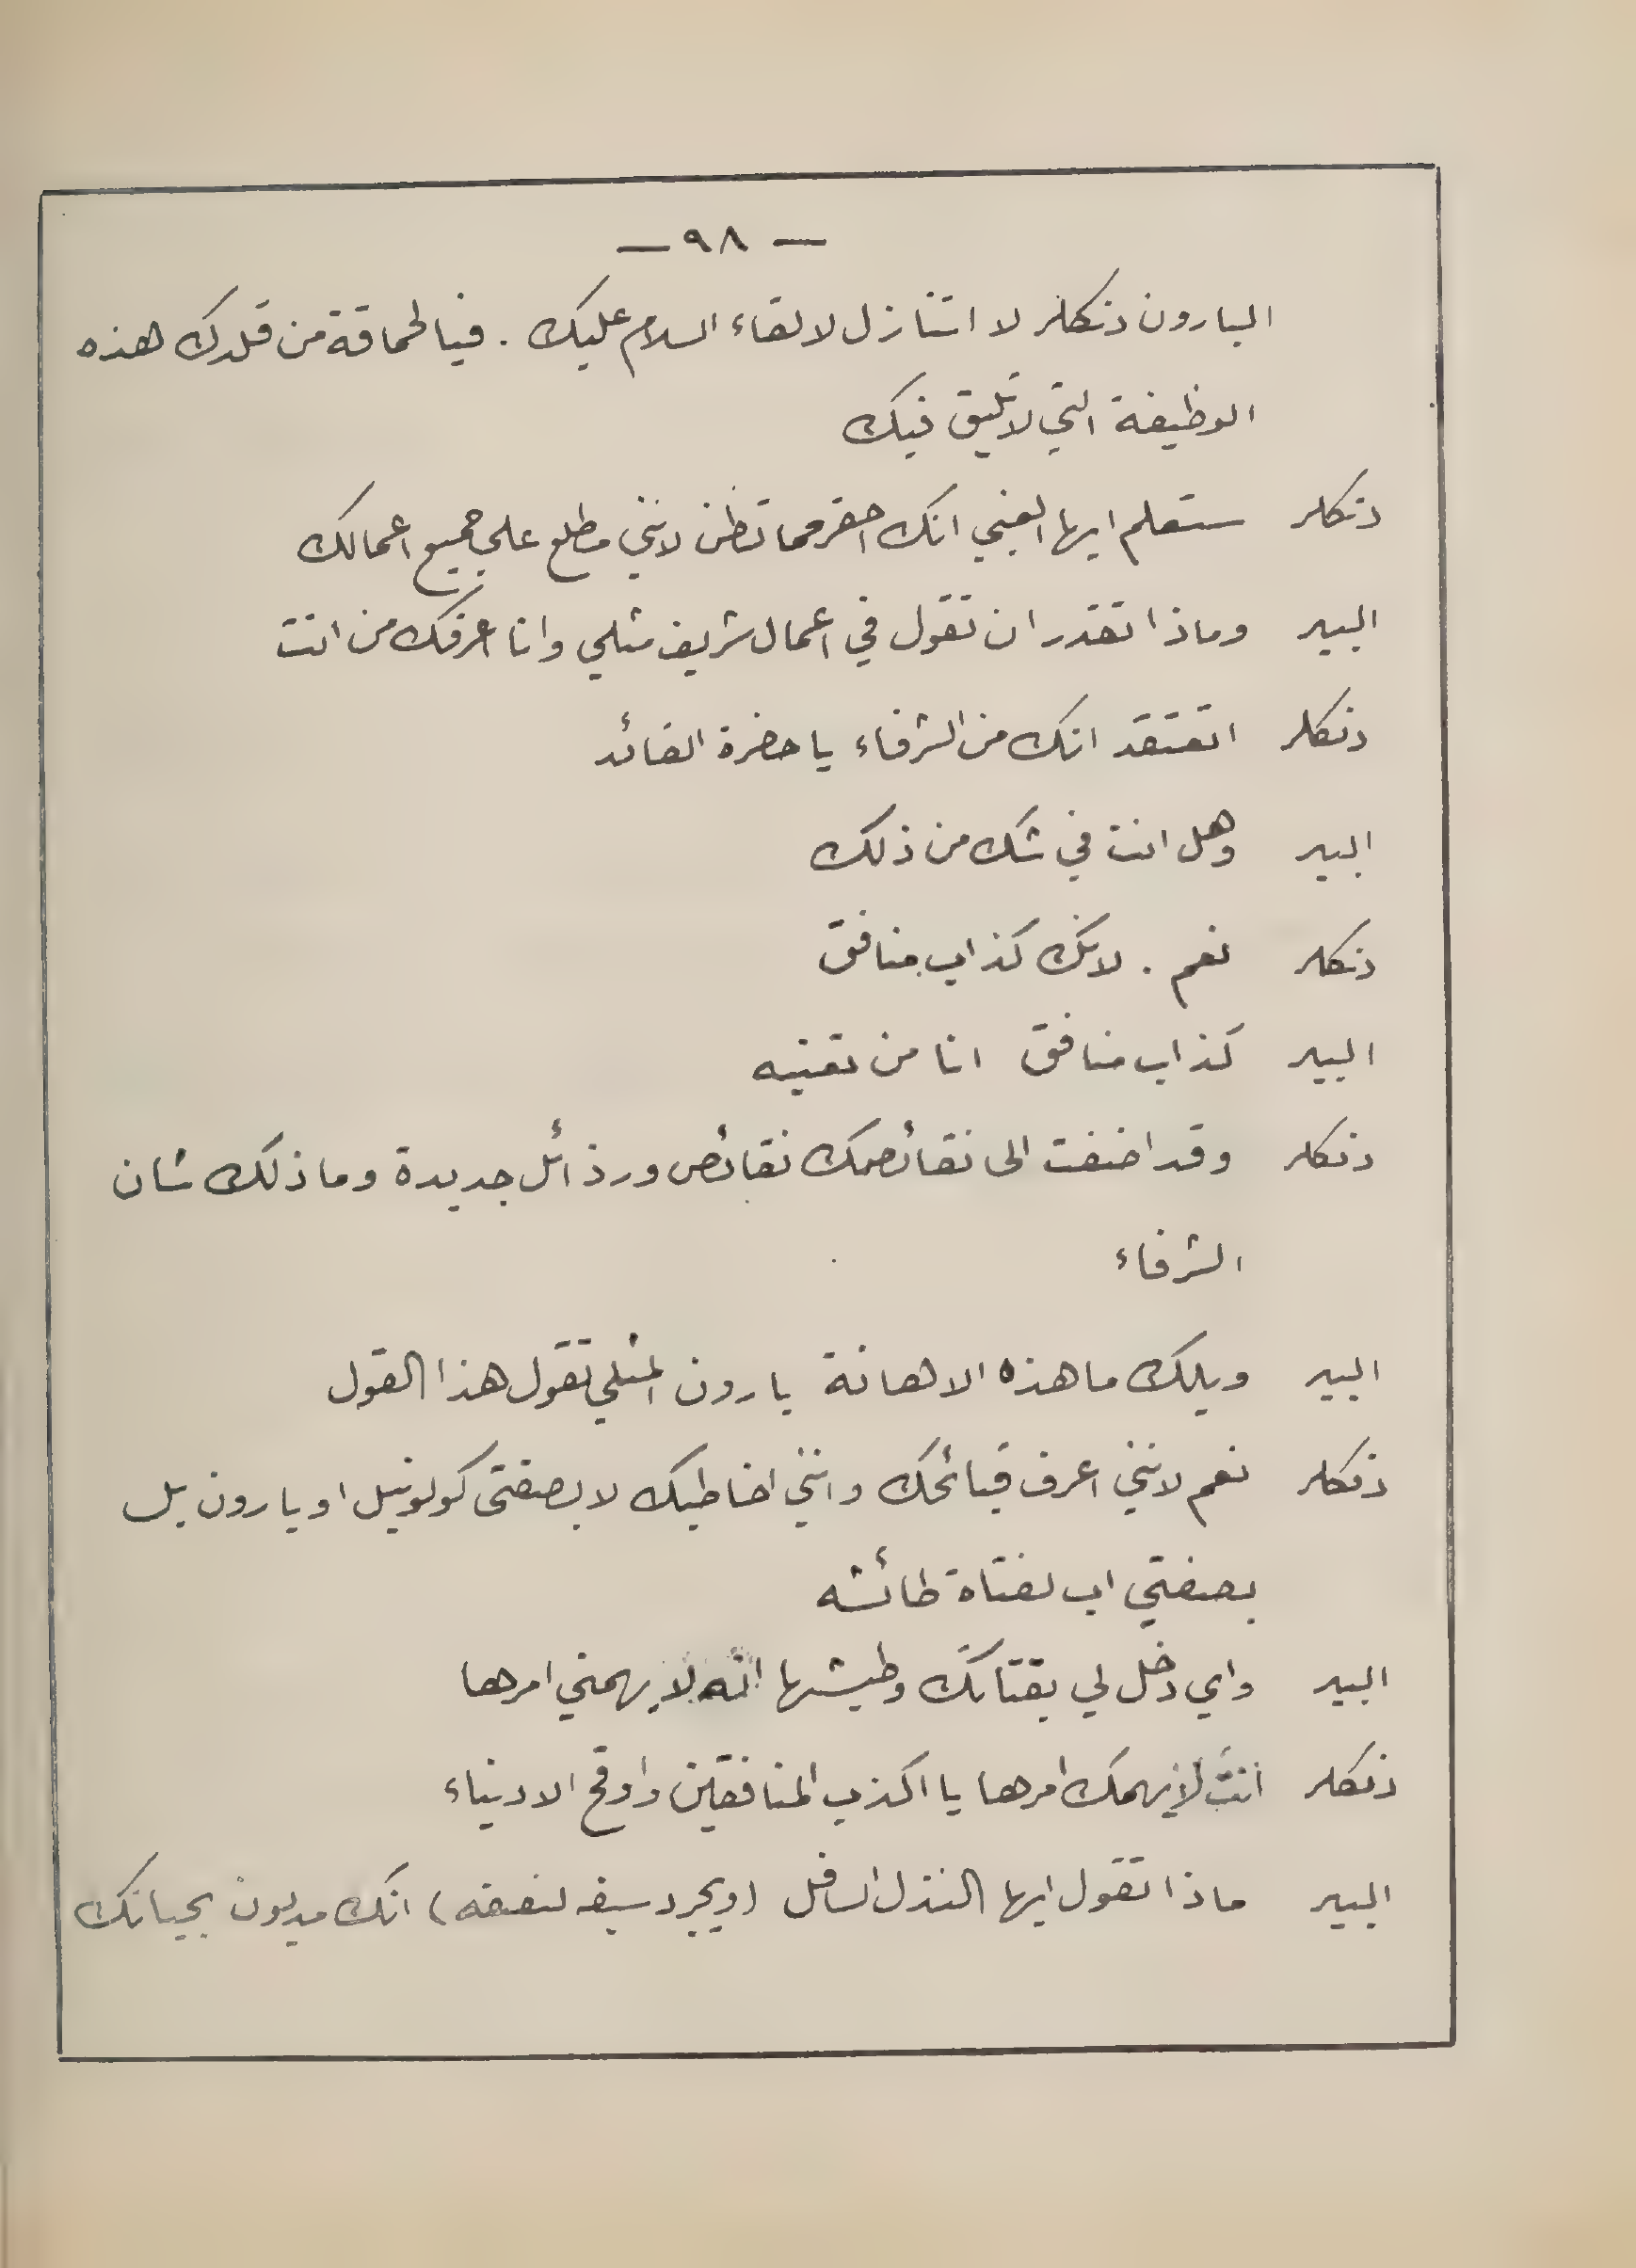 — ٩٨ —
البارون دنكلر لا اتنازل لالقاء السلام عليك . فيا لحماقة من قلدك هذه
الوظيفة التي لا تليق فيك
دنكلر ستعلم ايها الغبي انك احقر مما تظن لانني مطلع على جميع اعمالك
البير وماذا تقدر ان تقول في اعمال شريف مثلي وانا اعرفك من انت
دنكلر اتعتقد انك من الشرفاء يا حضرة القائد
البير وهل انت في شك من ذلك
دنكلر نعم . لانك كذاب منافق
البير كذاب منافق انا من تعنيه
دنكلر وقد اضفت الى نقائصك نقائص ورذائل جديدة وما ذلك شان
الشرفاء
البير ويلك ما هذه الاهانة يا رون المثلي تقول هذا القول
دنكلر نعم لانني اعرف قبائحك وانني اخاطبك لا بصفتي كولونيل او بارون بل
بصفتي اب لفتاة طائشه
البير واي دخل لي بفتاتك وطيشها انه لا يهمني امرها
دنكلر انت لا يهمك امرها يا اكذب المنافقين واوقح الادنياء
البير ماذا تقول ايها النذل السافل (ويجرد سيفه لنصفه) انك مديون بحياتك